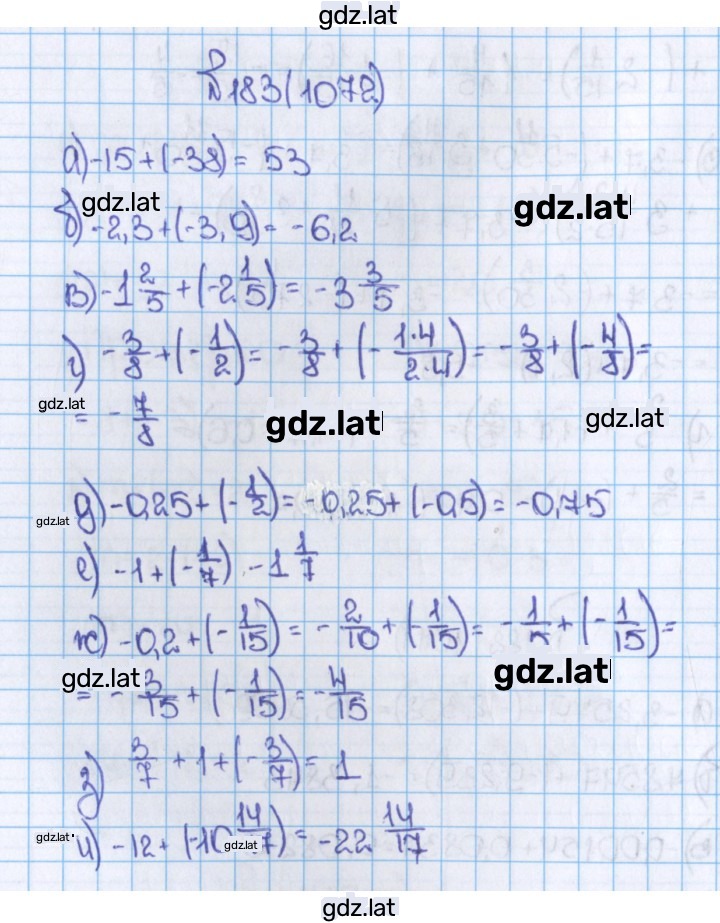 gdz.lat
№183(1072)
а) -15 + (-38) = 53
gdz.lat
gdz.lat
б) -2,3 + (-3,9) = -6,2
в) -1 2/5 + (-2 1/5) = -3 3/5
г) -3/8 + (-1/2) = -3/8 + (-1·4/2·4) = -3/8 + (-4/8) =
gdz.lat
= -7/8
gdz.lat
gdz.lat
gdz.lat
д) -0,25 + (-1/2) = -0,25 + (-0,5) = -0,75
е) -1 + (-1/7) -1 1/7
ж) -0,2 + (-1/15) = -2/10 + (-1/15) = -1/5 + (-1/15) =
gdz.lat
gdz.lat
= -3/15 + (-1/15) = -4/15
з) 3/7 + 1 + (-3/7) = 1
gdz.lat
и) -12 + (-10 14/17) = -22 14/17
gdz.lat
gdz.lat